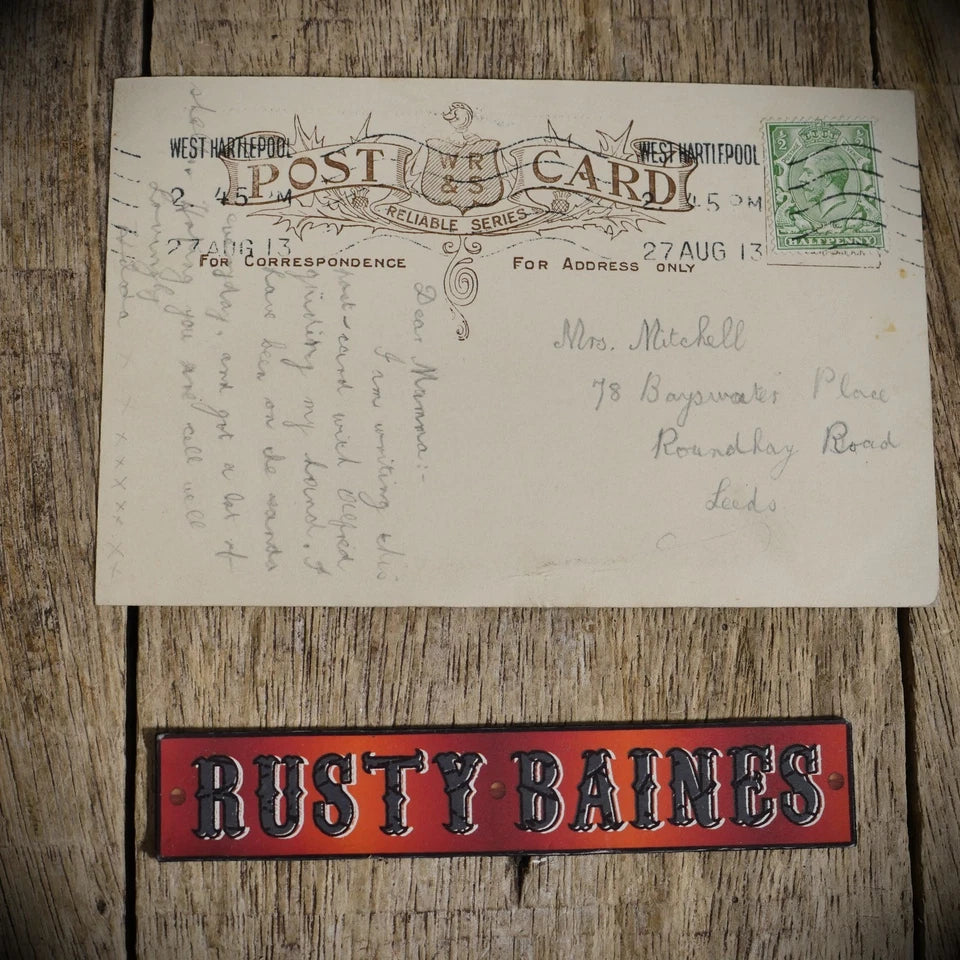 WEST HARTLEPOOL
2 45 PM
27 AUG 13
WEST HARTLEPOOL
2 45 PM
27 AUG 13
POST CARD
WR
&S
RELIABLE SERIES
FOR CORRESPONDENCE
FOR ADDRESS ONLY
HALFPENNY
Dear Mamma:-
I am writing this
post-card with Alfred
guiding my hand. I
have been on the sands
day, and got a lot of
Hoping you are all well
Lovingly
x x x x x x x
Mrs. Mitchell
78 Bayswater Place
Roundhay Road
Leeds.
RUSTY BAINES